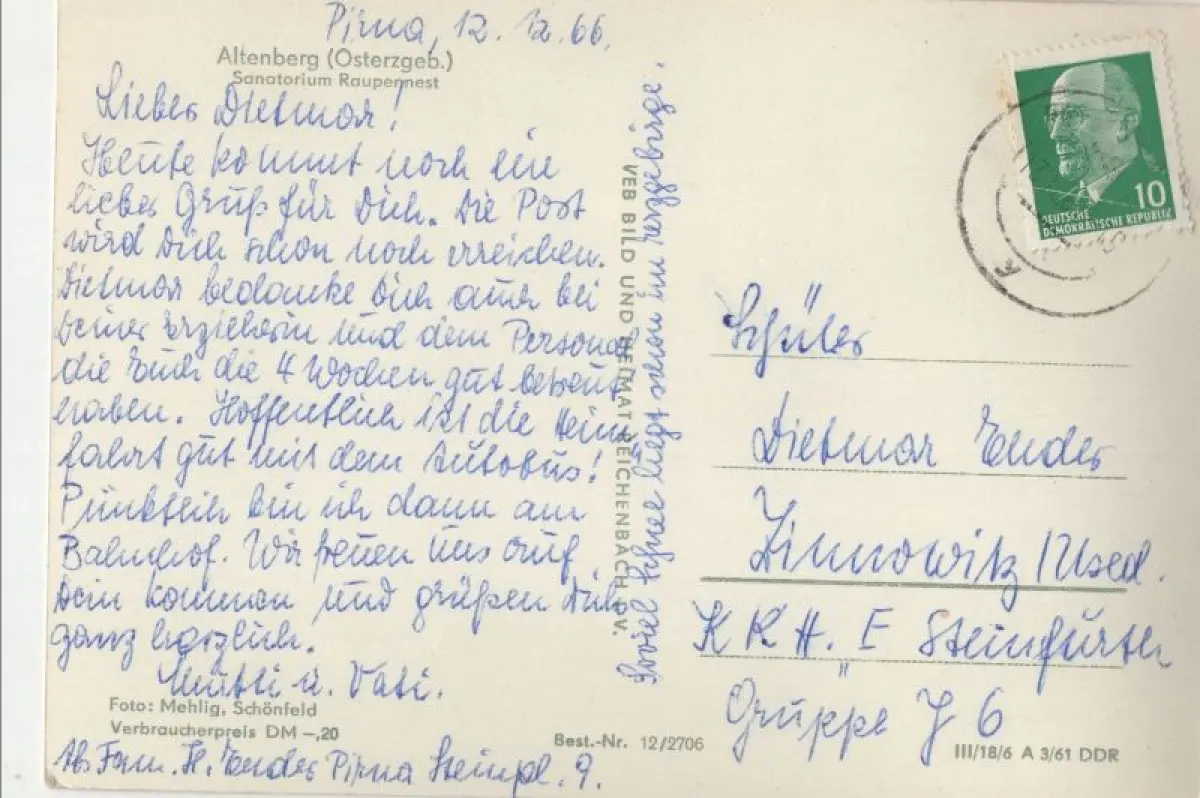 Pirna, 12. 12. 66.
Altenberg (Osterzgeb.)
Sanatorium Raupennest
Lieber Dietmar!
Heute kommt noch ein
lieber Gruß für Dich. Die Post
wird Dich schon noch erreichen.
Dietmar bedanke Dich auch bei
Deiner Erzieherin und dem Personal
die Euch die 4 Wochen gut betreut
haben. Hoffentlich ist die Heim
fahrt gut mit dem Autobus!
Pünktlich bin ich dann am
Bahnhof. Wir freuen uns auf
Dein kommen und grüßen Dich
ganz herzlich.
Mutti u. Vati.
Foto: Mehlig, Schönfeld
Verbraucherpreis DM –,20
Abs. Fam. H. Ender Pirna Steinpl. 9.
Best.-Nr. 12/2706
VEB BILD UND HEIMAT REICHENBACH i. V.
Soviel Schnee liegt schon im Erzgebirge.
10
DEUTSCHE
DEMOKRATISCHE REPUBLIK
Schüler
Dietmar Ender
Zinnowitz / Used.
KKH. E Steinfurth
Gruppe J 6
III/18/6 A 3/61 DDR